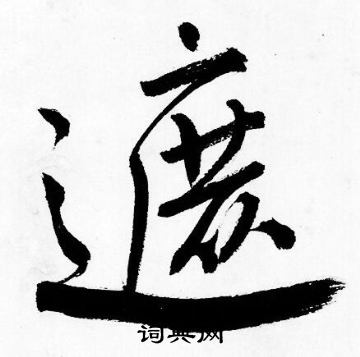 遮
词典网